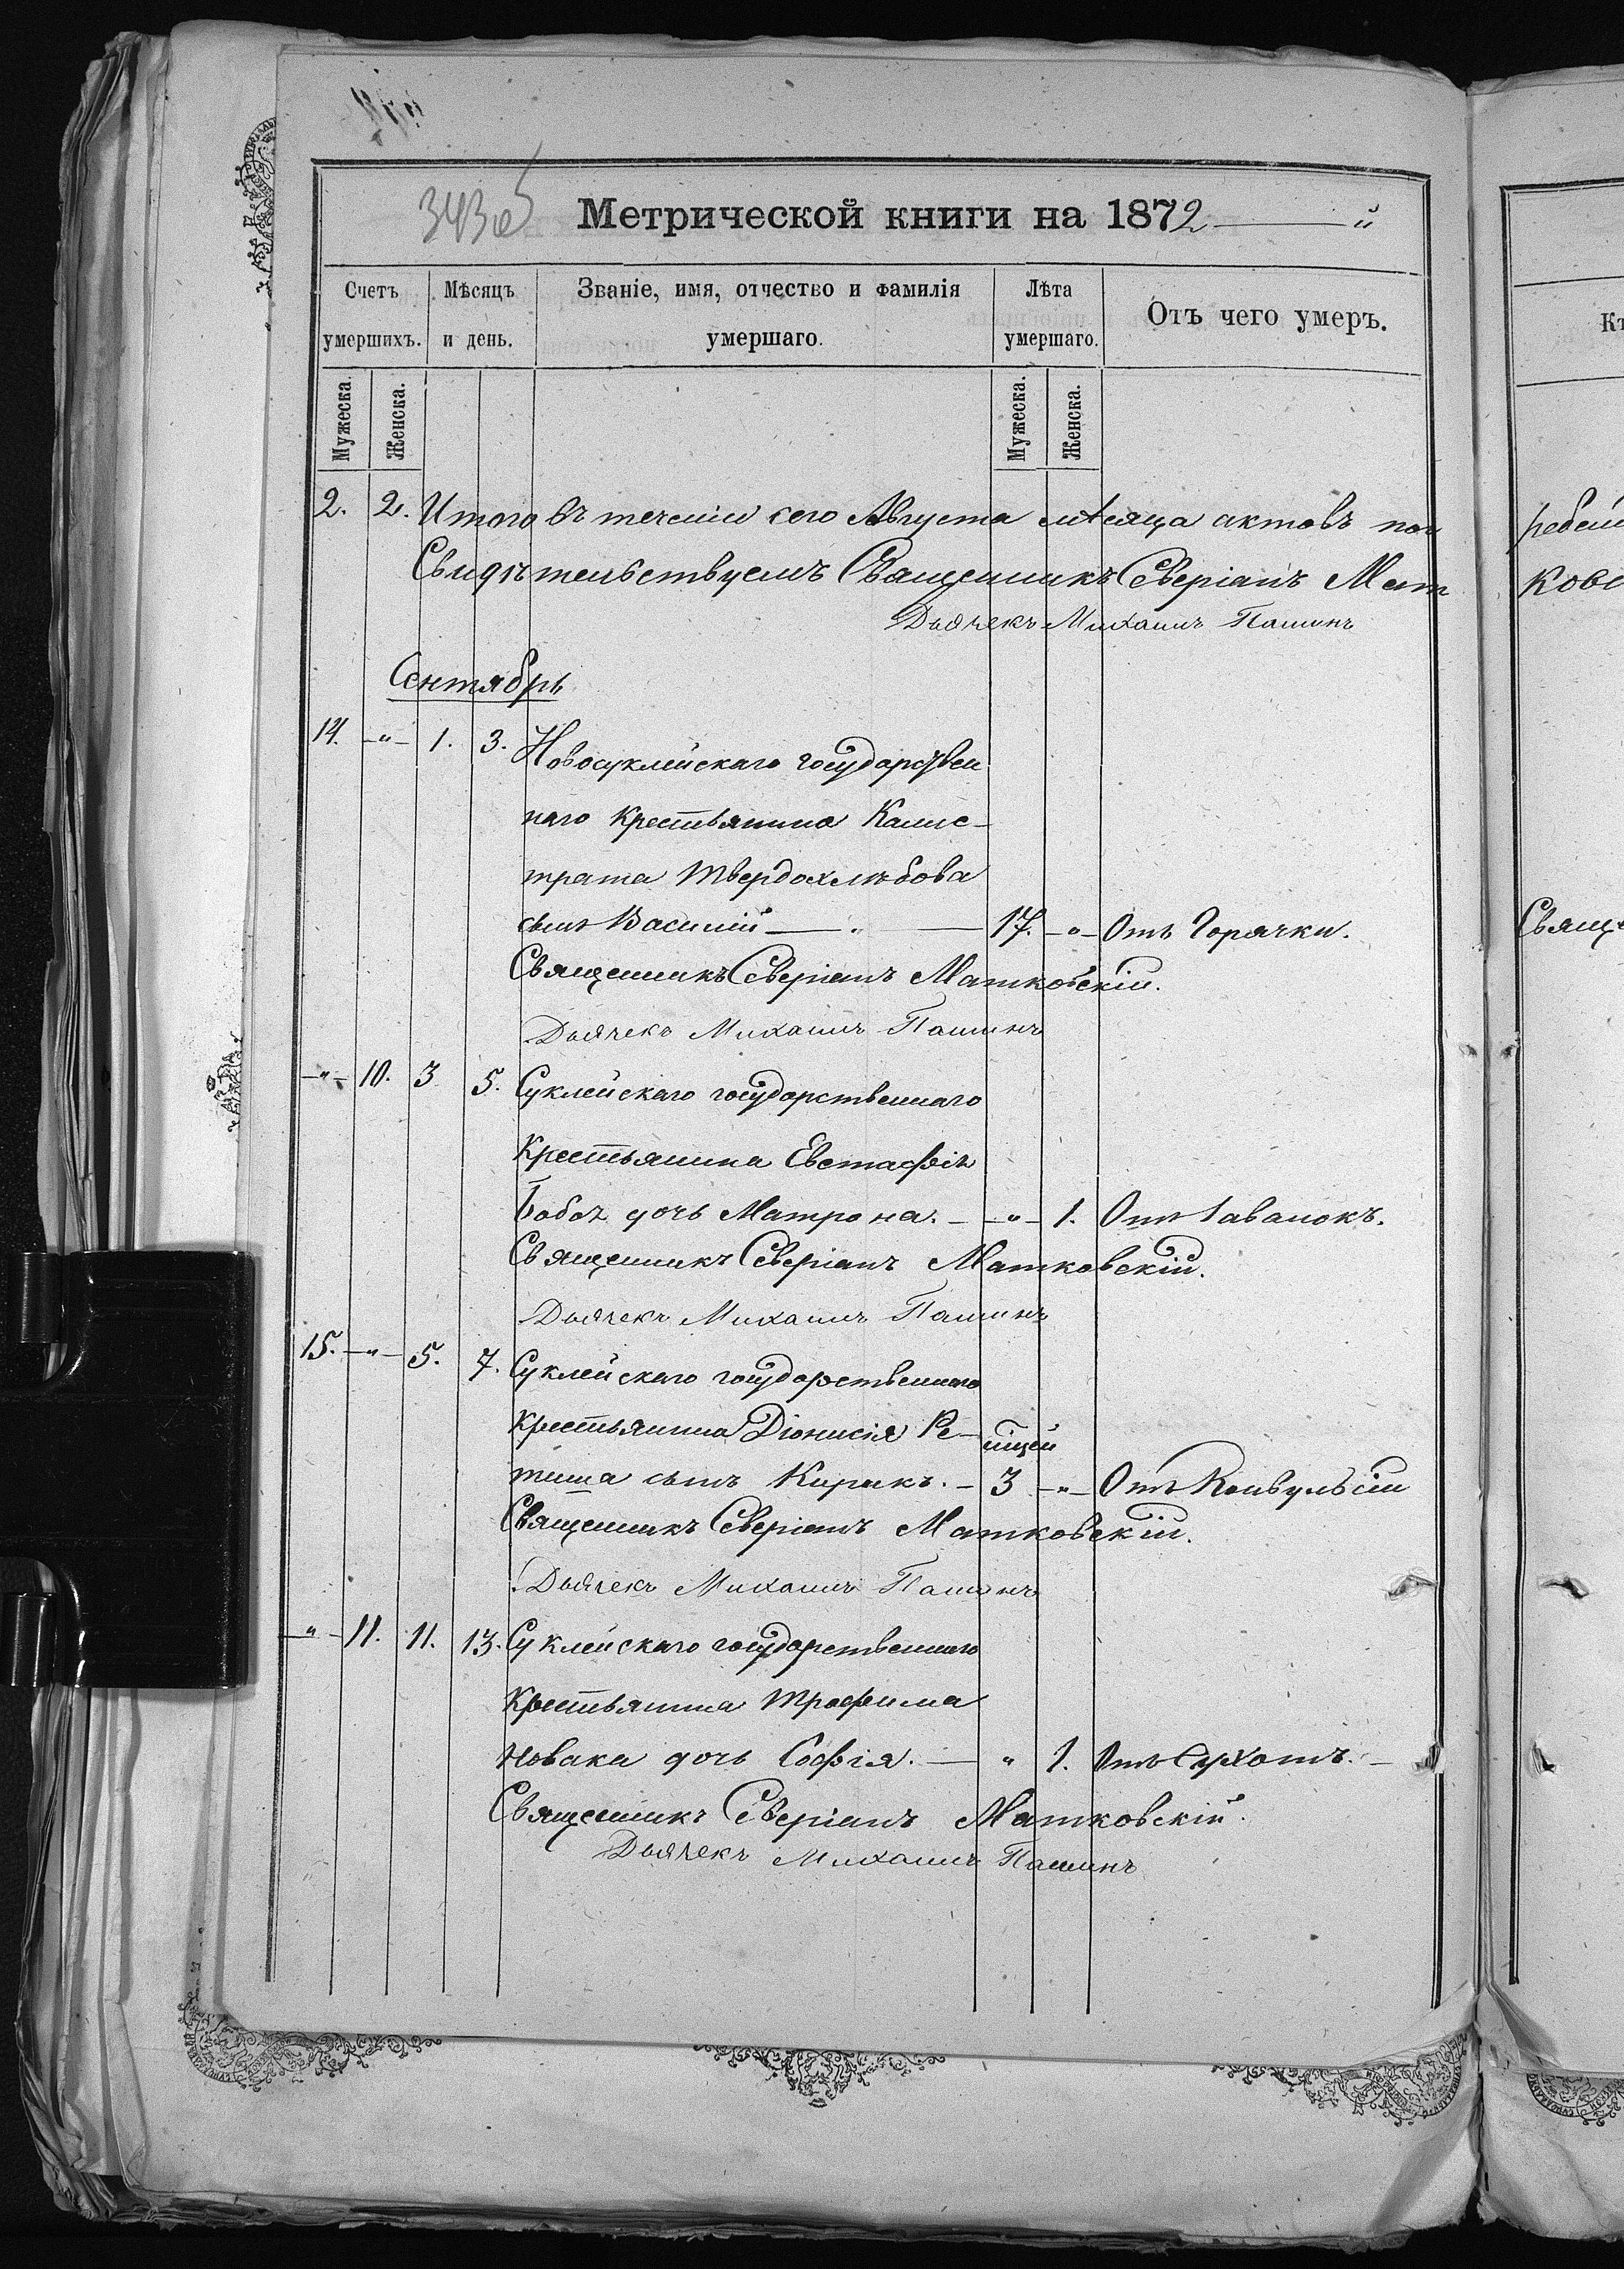 343об
Метрической книги на 1872 — й
Счетъ умершихъ. Мѣсяцъ и день. Званіе, имя, отчество и фамилія умершаго. Лѣта умершаго. Отъ чего умеръ.
Мужеска. Женска. Мужеска. Женска.
2. 2. Итого въ теченіи сего Августа мѣсяца актовъ пог
Свидѣтельствуемъ Священникъ Северіанъ Мат
Дьячекъ Михаилъ Пашинъ
Сентябрь
14. -"- 1. 3. Новосуклейскаго государствен
наго крестьянина Калис-
трата Твердохлѣбова
сынъ Василій — " — 17. -"- Отъ Горячки.
Священникъ Северіанъ Матковскій.
Дьячекъ Михаилъ Пашинъ
-"- 10. 3 5. Суклейскаго государственнаго
Крестьянина Евстафія
дочь Матрона. - -"- 1. Отъ
Священникъ Северіанъ Матковскій.
Дьячекъ Михаилъ Пашинъ
15. -"- 5. 7. Суклейскаго государственнаго
Крестьянина Діонисія Ре-
тиша сынъ Кирикъ. - 3 -"- Отъ Конвульсіи
Священникъ Северіанъ Матковскій.
Дьячекъ Михаилъ Пашинъ
-"- 11. 11. 13. Суклейскаго государственнаго
Крестьянина Трофима
Новака дочь Софія. — " 1. Отъ Сухотъ. -
Священникъ Северіанъ Матковскій.
Дьячекъ Михаилъ Пашинъ
ребен
кове
Свящ